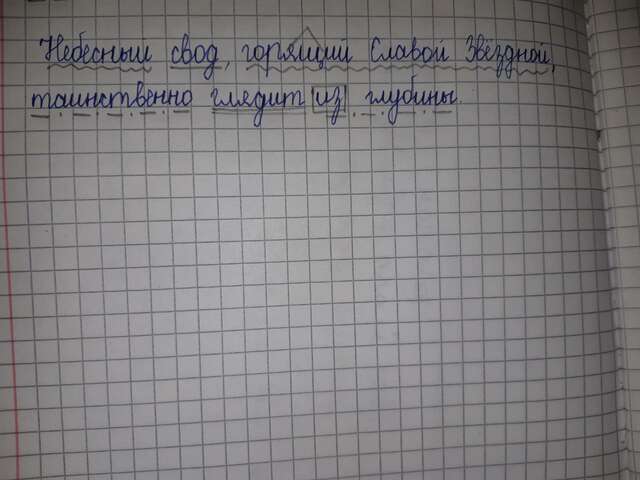 Небесный свод, горящий Славой Звёздной,
таинственно глядит из глубины.